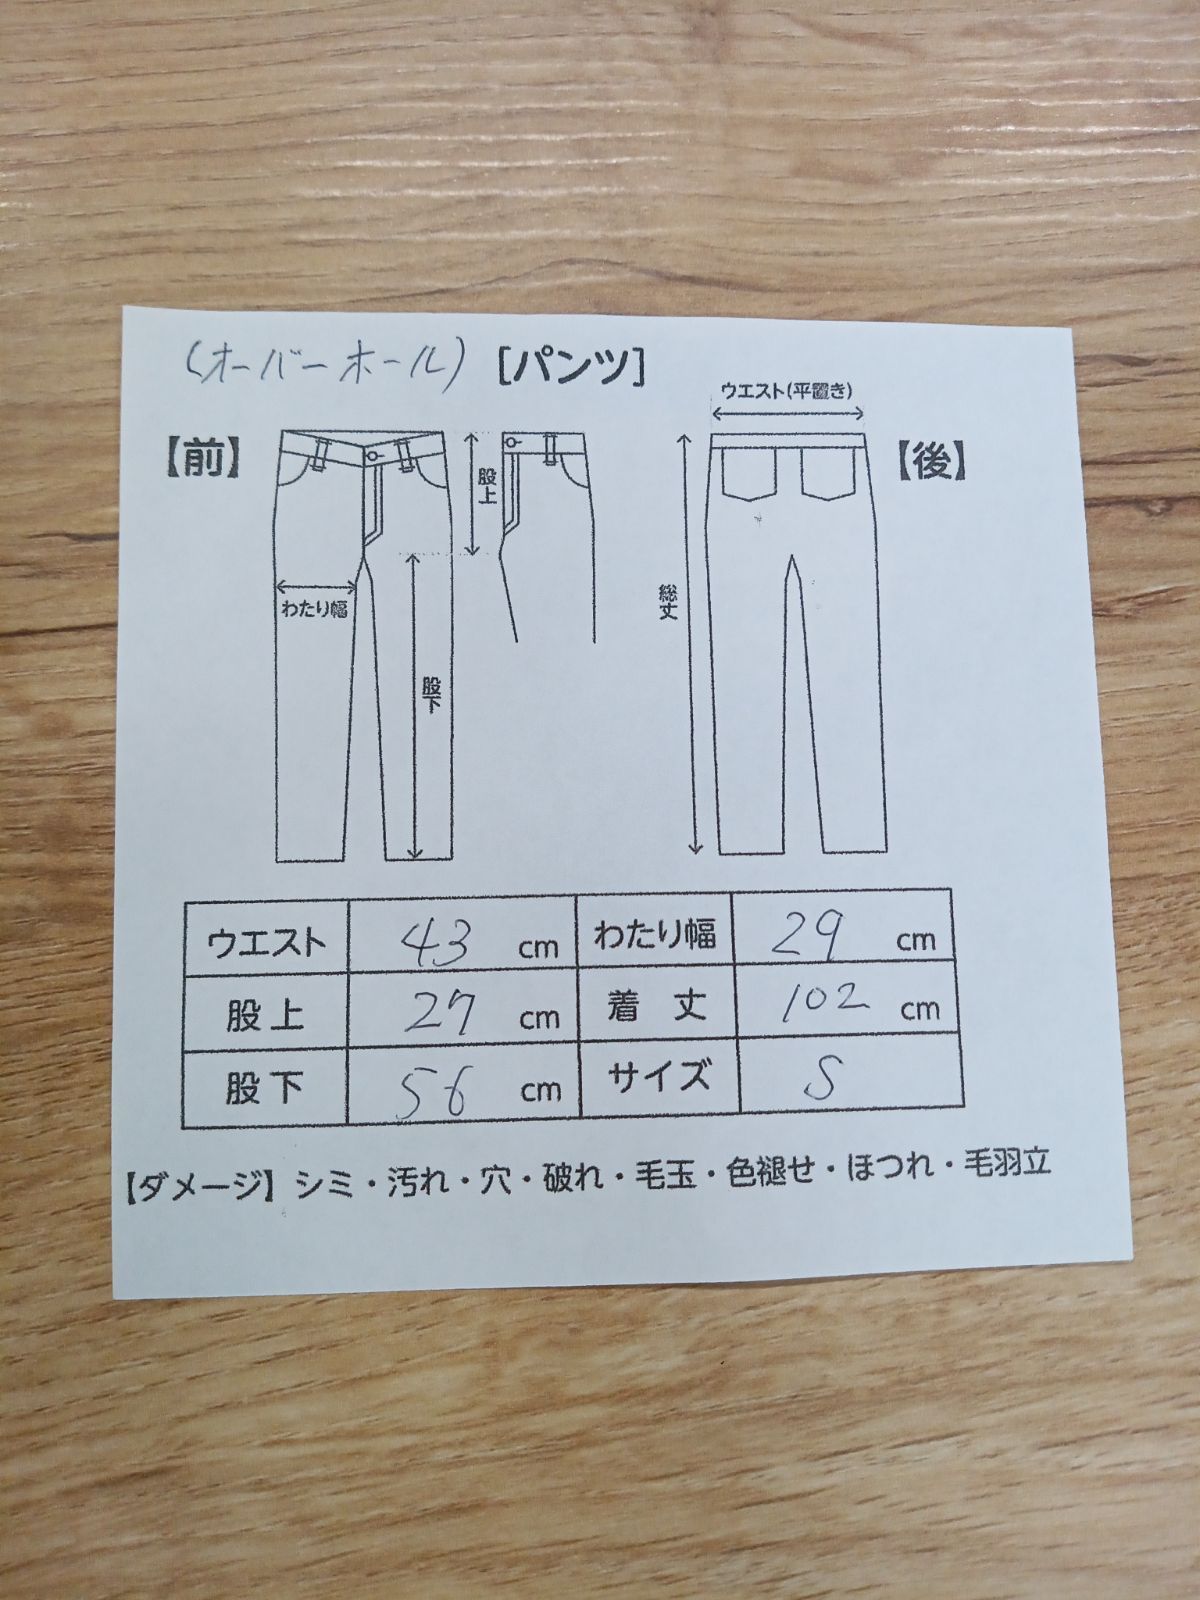 (オーバーホール) [パンツ]
ウエスト(平置き)
【前】
【後】
股上
わたり幅
総丈
股下
ウエスト 43 cm わたり幅 29 cm
股上 27 cm 着丈 102 cm
股下 56 cm サイズ S
【ダメージ】シミ・汚れ・穴・破れ・毛玉・色褪せ・ほつれ・毛羽立